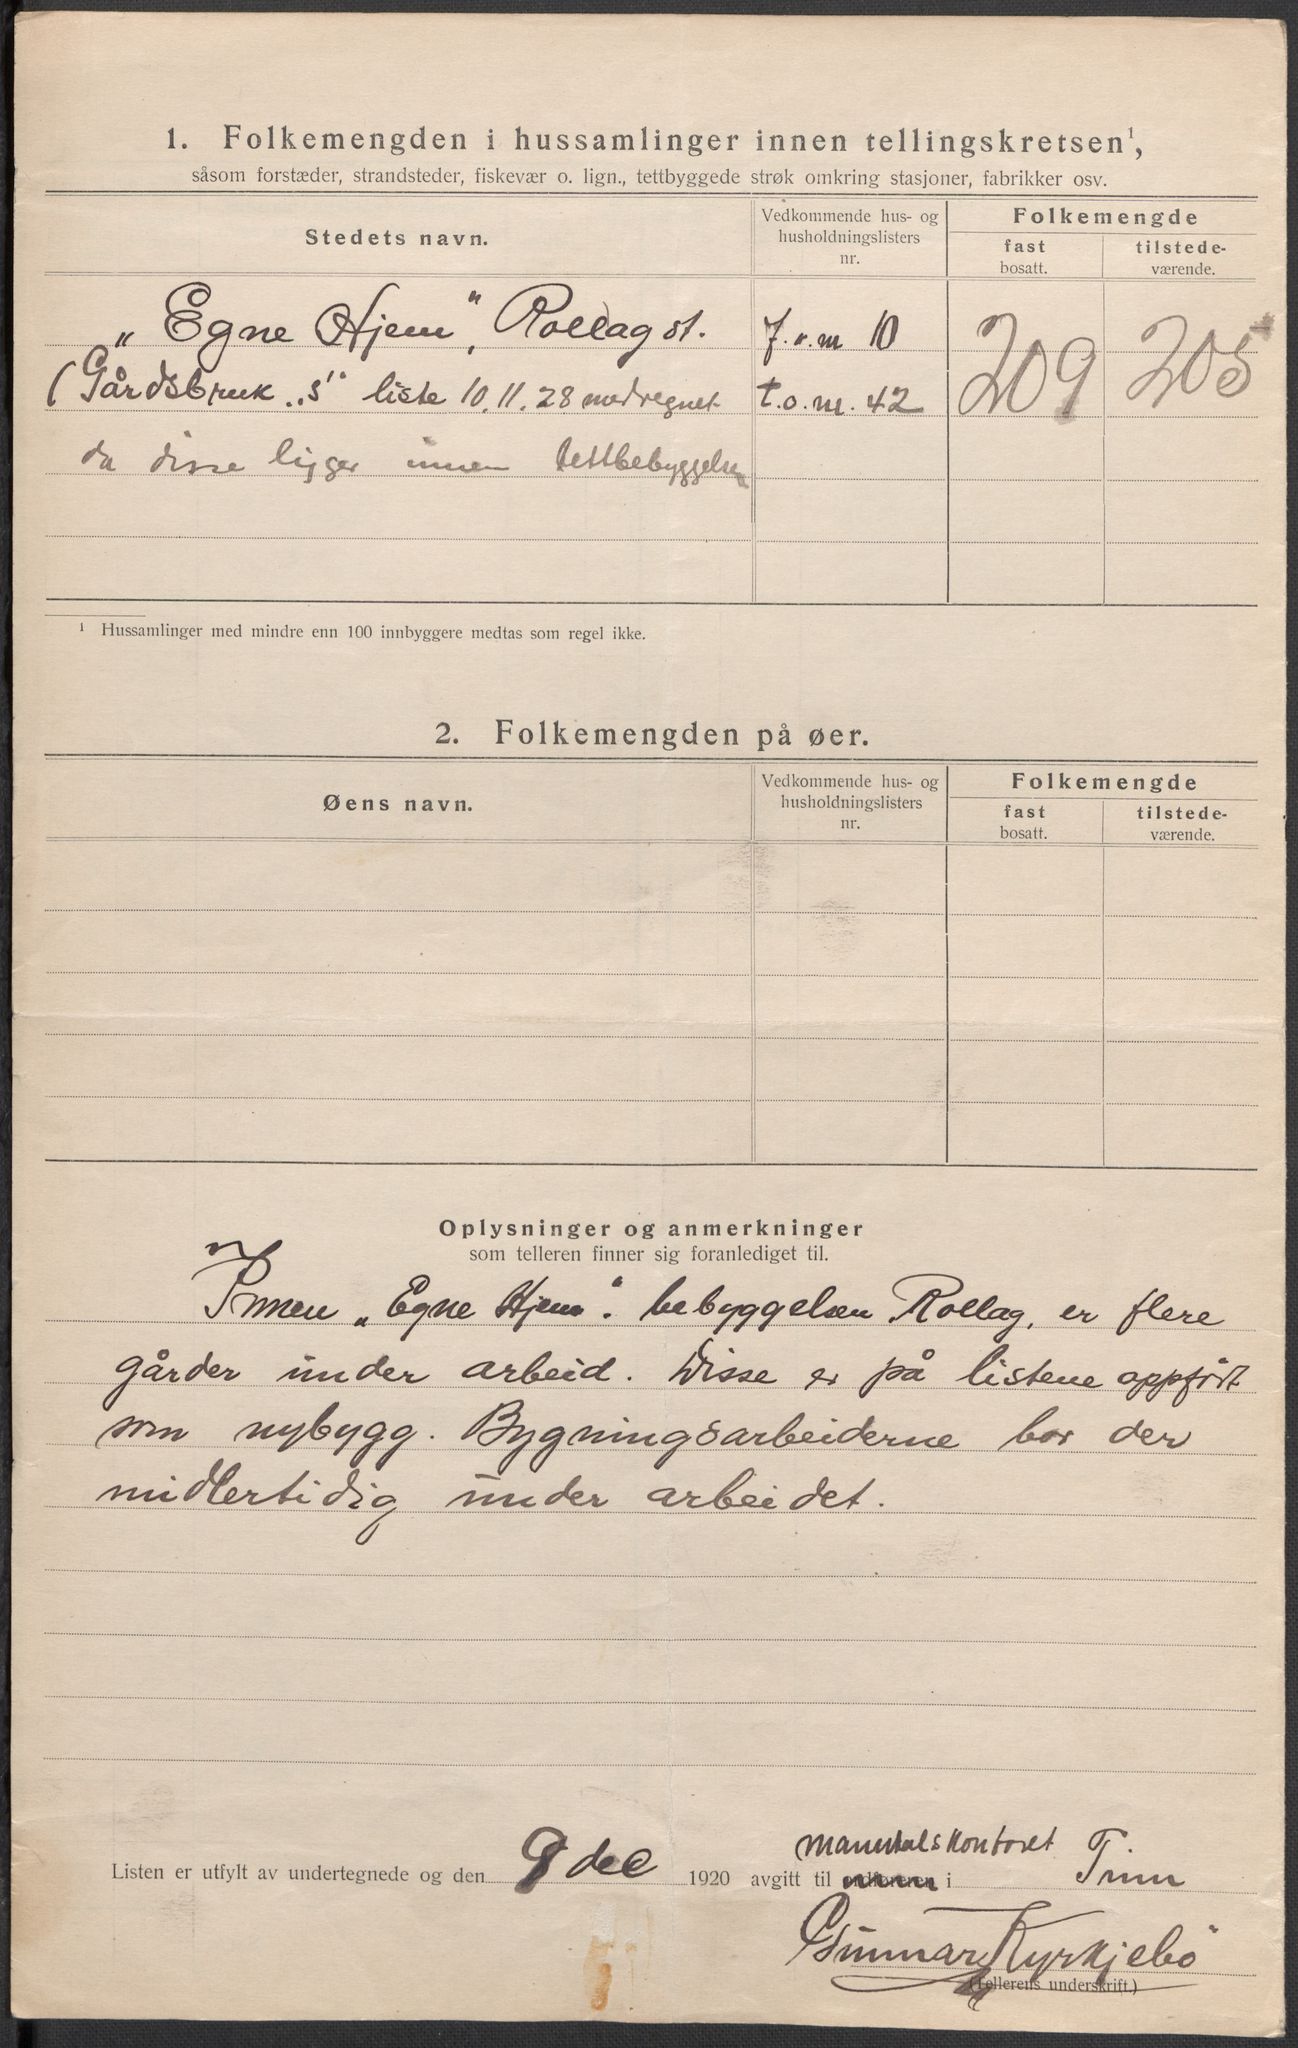 1. Folkemengden i hussamlinger innen tellingskretsen¹,
såsom forstæder, strandsteder, fiskevær o. lign., tettbyggede strøk omkring stasjoner, fabrikker osv.
Stedets navn.
Vedkommende hus- og
husholdningslisters
nr.
Folkemengde
fast
bosatt.
tilstede-
værende.
„Egne Hjem", Rollag st. f.o.m 10 209 205
(Gårdsbruk „s" liste 10.11.28 medregnet t.o.m. 42
da disse ligger innen tettbebyggelsen
¹ Hussamlinger med mindre enn 100 innbyggere medtas som regel ikke.
2. Folkemengden på øer.
Øens navn.
Vedkommende hus- og
husholdningslisters
nr.
Folkemengde
fast
bosatt.
tilstede-
værende.
Oplysninger og anmerkninger
som telleren finner sig foranlediget til.
Innen „Egne Hjem". bebyggelsen Rollag, er flere
gårder under arbeid. Disse er på listene oppført
som nybygg. Bygningsarbeiderne bor der
midlertidig under arbeidet.
manntalskontoret
Listen er utfylt av undertegnede og den 9 dec 1920 avgitt til i Tinn
Gunnar Kyrkjebö
(Tellerens underskrift.)